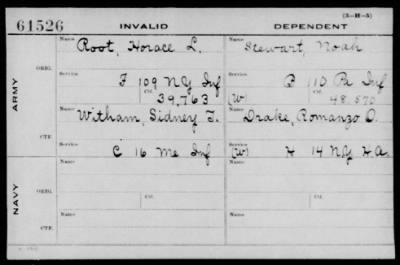 (3-H-5)
61526 INVALID DEPENDENT
Name Root, Horace L. Name Stewart, Noah
ARMY
ORIG. Service F 109 NY Inf Service B 110 Pa Inf
Ctf. 39,763 (W) Ctf. 48,570
Name Witham, Sidney F. Name Drake, Romanzo O.
CTF. Service C 16 Me Inf Service (W) H 14 NY H.A.
NAVY
Name Name
ORIG. Service Ctf. Service Ctf.
Name Name
CTF. Service Service